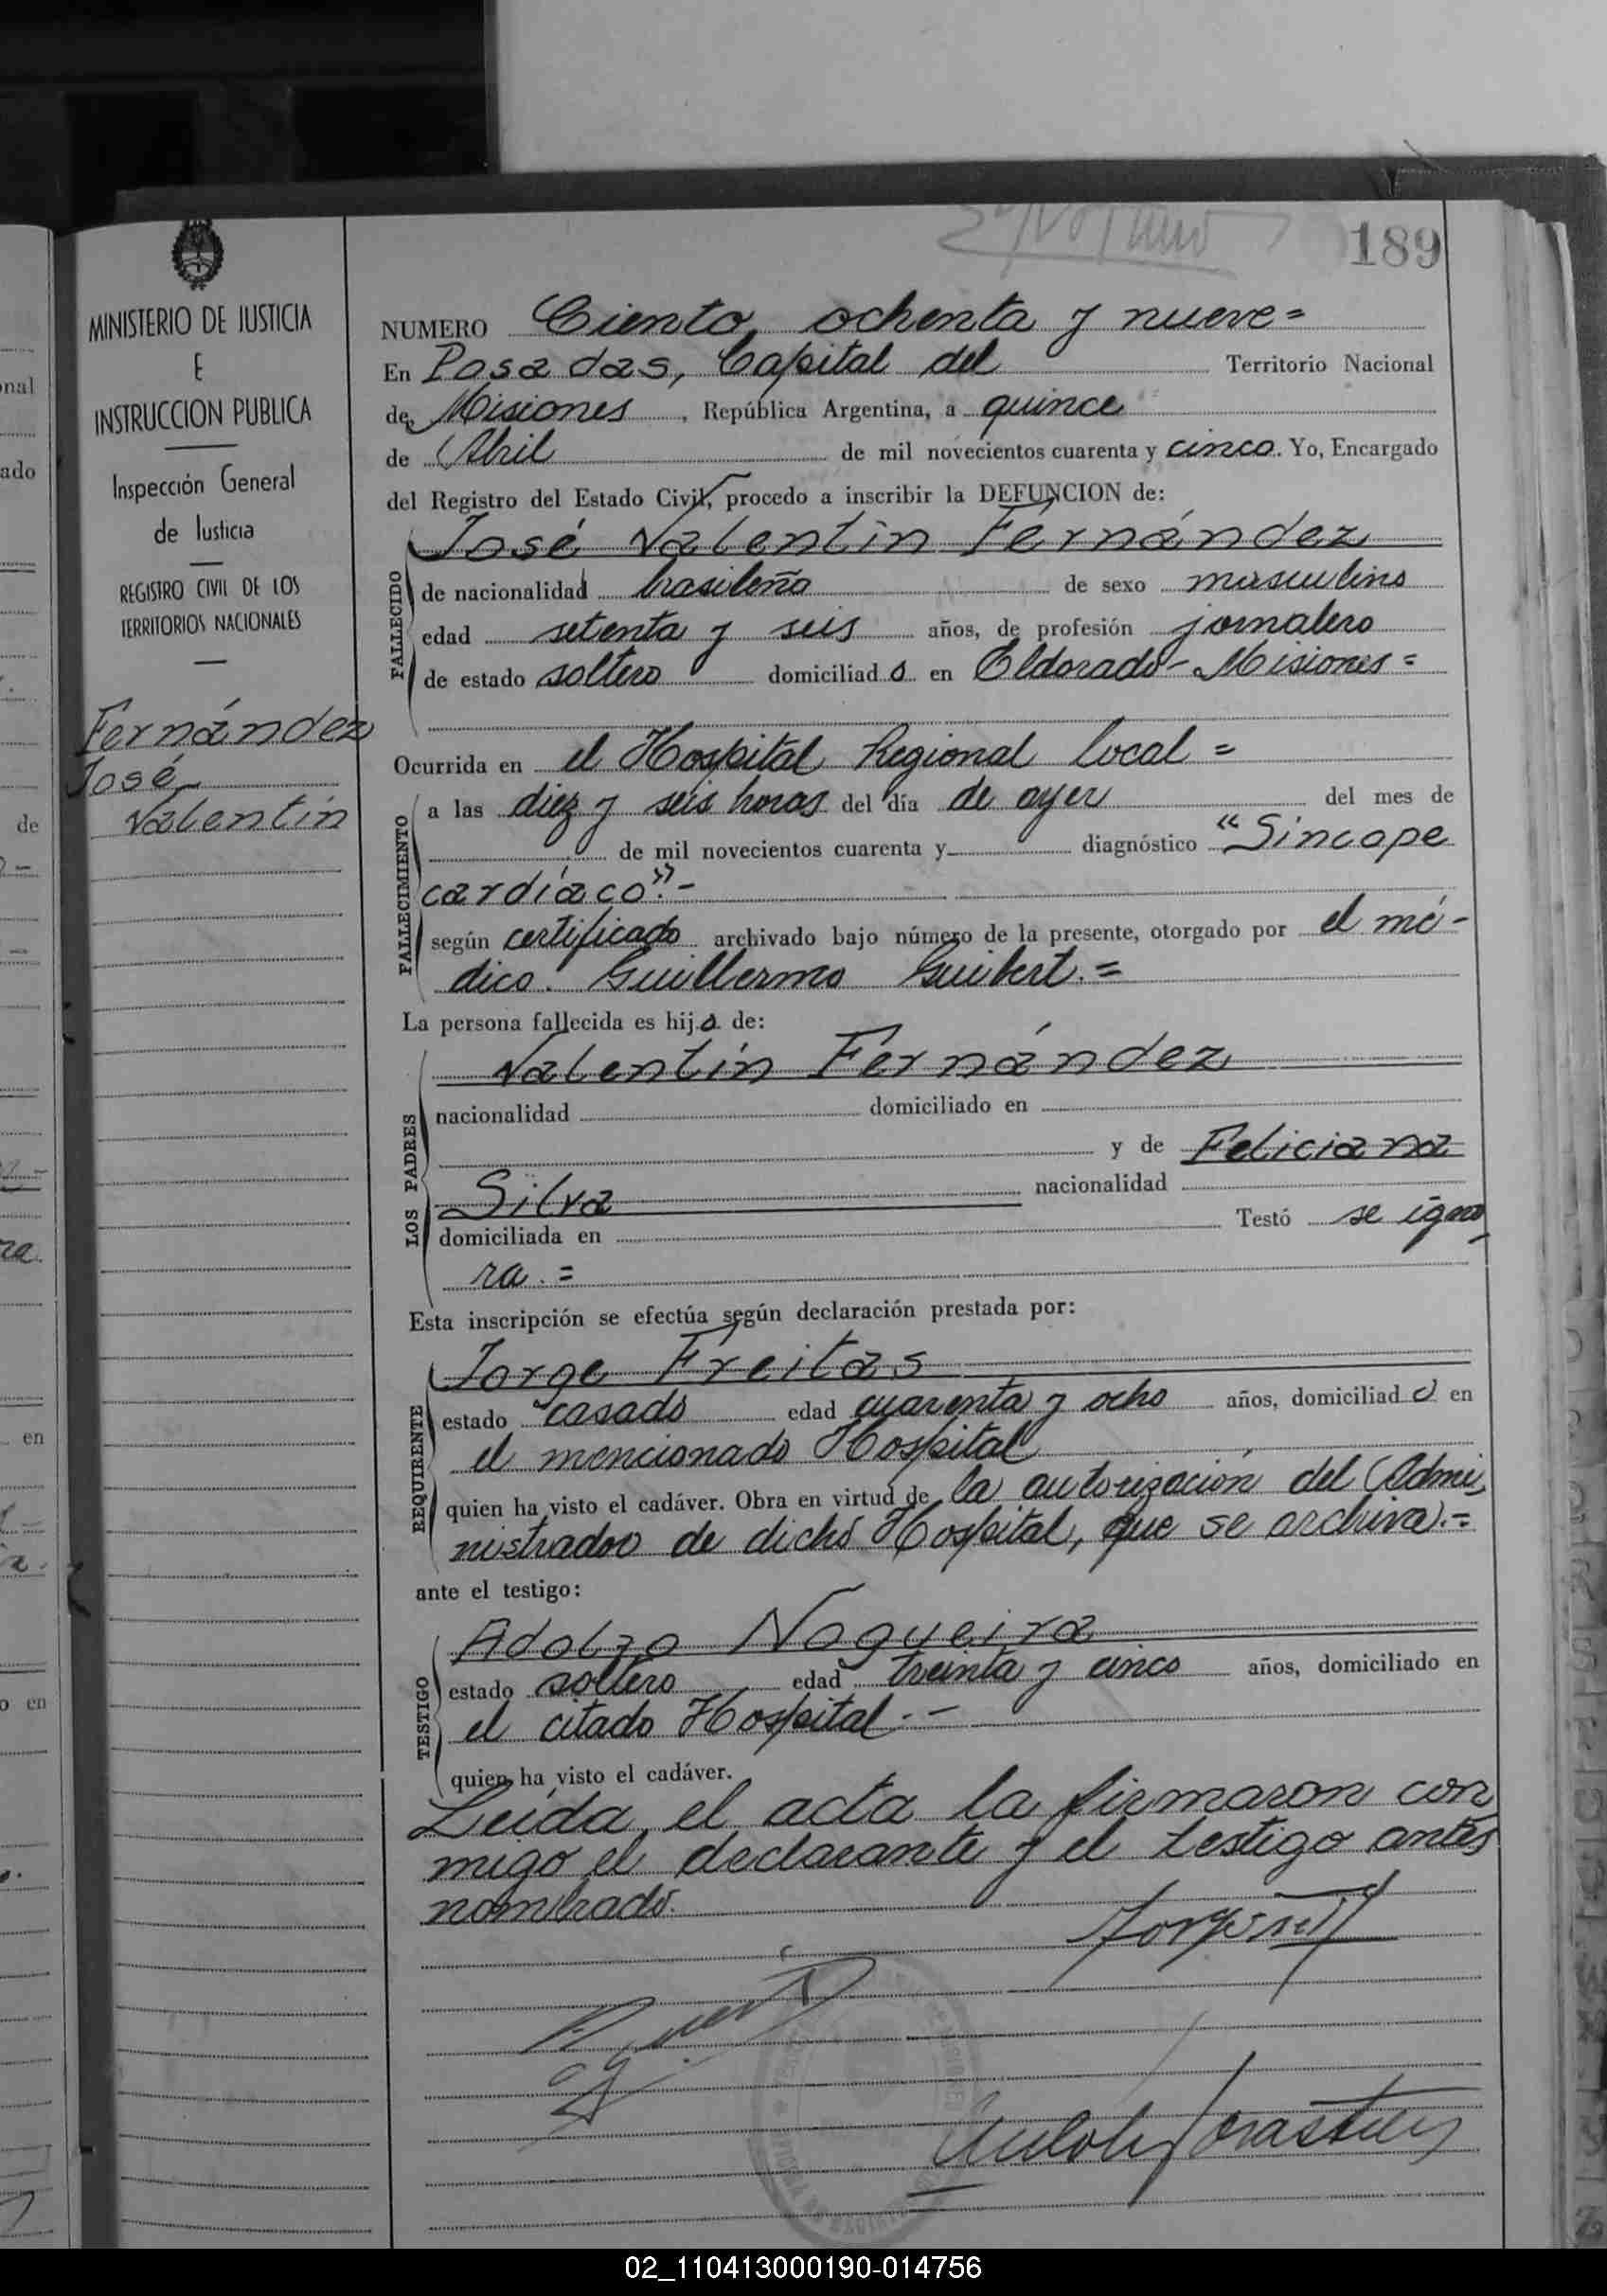 189
MINISTERIO DE JUSTICIA
E
INSTRUCCION PUBLICA
Inspección General
de Justicia
REGISTRO CIVIL DE LOS
TERRITORIOS NACIONALES
Fernández
José
Valentín
NUMERO Ciento ochenta y nueve=
En Posadas, Capital del Territorio Nacional
de Misiones, República Argentina, a quince
de Abril de mil novecientos cuarenta y cinco. Yo, Encargado
del Registro del Estado Civil, procedo a inscribir la DEFUNCION de:
José Valentín Fernández
FALLECIDO
de nacionalidad brasileña de sexo masculino
edad setenta y seis años, de profesión jornalero
de estado soltero domiciliado en Eldorado - Misiones=
Ocurrida en el Hospital Regional local=
FALLECIMIENTO
a las diez y seis horas del día de ayer del mes de
de mil novecientos cuarenta y diagnóstico "Sincope
cardíaco".-
según certificado archivado bajo número de la presente, otorgado por el mé-
dico Guillermo Guibert.=
La persona fallecida es hijo de:
LOS PADRES
Valentín Fernández
nacionalidad domiciliado en
y de Feliciana
Silva nacionalidad
domiciliada en Testó se igno
ra.=
Esta inscripción se efectúa según declaración prestada por:
REQUIRENTE
Jorge Freitas
estado casado edad cuarenta y ocho años, domiciliado en
el mencionado Hospital
quien ha visto el cadáver. Obra en virtud de la autorización del Admi
nistrador de dicho Hospital, que se archiva.=
ante el testigo:
TESTIGO
Adolfo Nogueira
estado soltero edad treinta y cinco años, domiciliado en
el citado Hospital.-
quien ha visto el cadáver.
Leída el acta la firmaron con
migo el declarante y el testigo antes
nombrado.
02_110413000190-014756